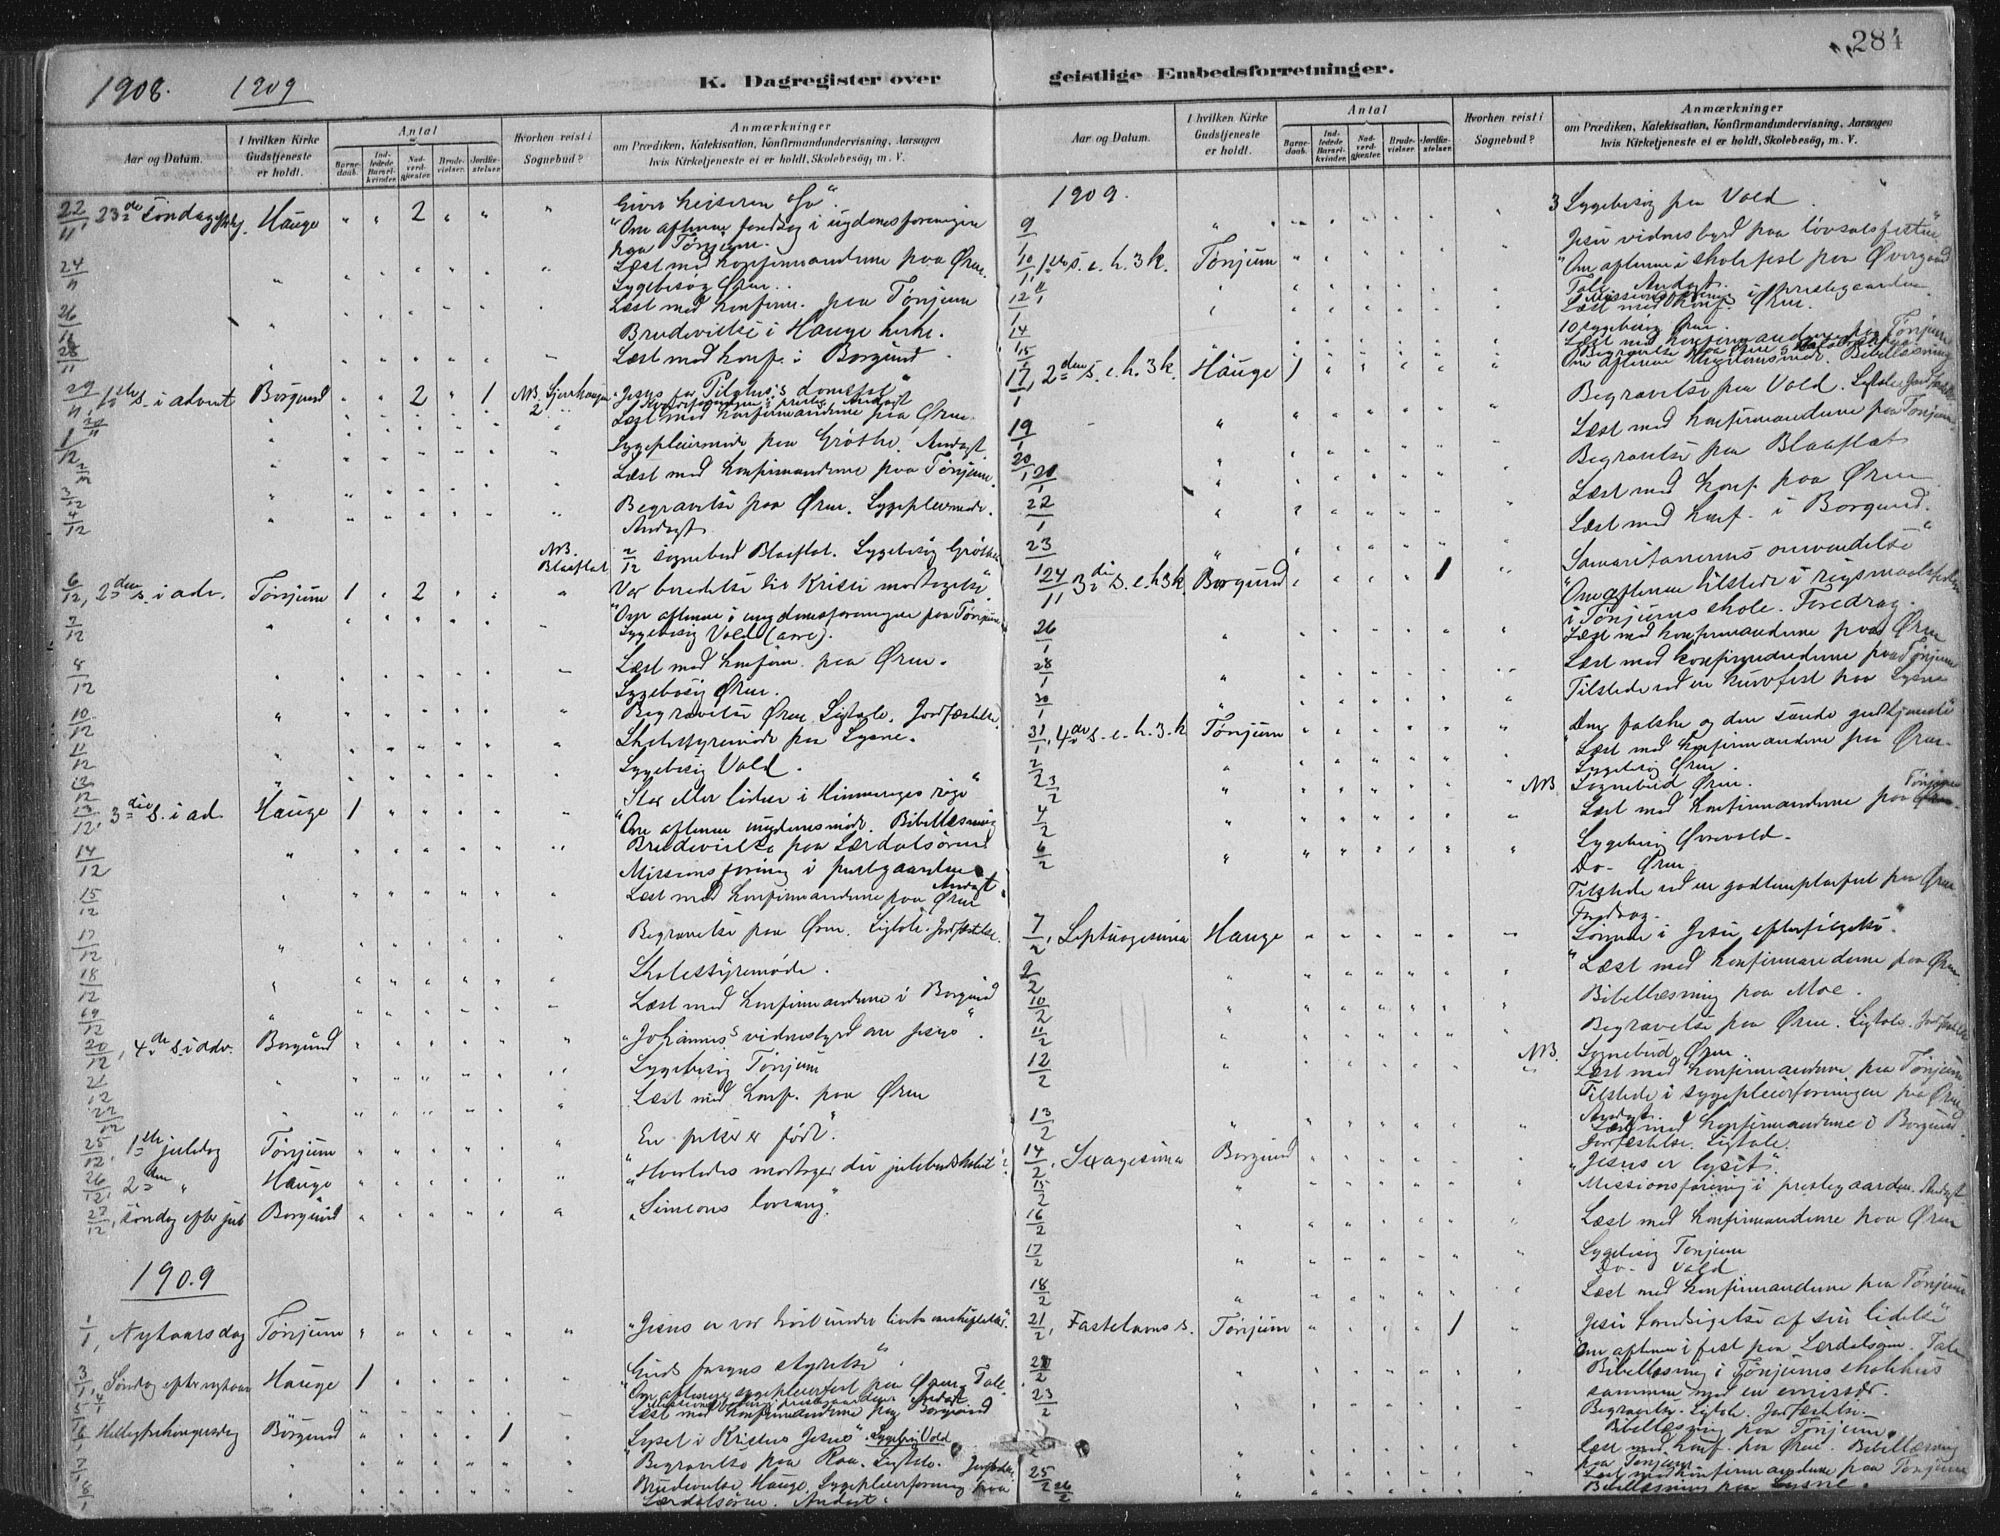 284
1908. 1909
K. Dagregister over geistlige Embedsforretninger.
Aar og Datum.
I hvilken Kirke Gudstjeneste er holdt.
Antal
Barnedaab.
Indledede Barselkvinder.
Nadverdgjester.
Brudevielser.
Jordfæstelser.
Hvorhen reist i Sognebud?
Anmærkninger
om Prædiken, Katekisation, Konfirmandundervisning, Aarsagen
hvis Kirketjeneste ei er holdt, Skolebesøg, m. V.
22/11, 23de søndag Hauge 2
"Om aftenen foredrag i ungdomsforeningen
paa Tønjum.
24/11 Læst med konfirmanderne paa Øren.
Sygebesøg Øren.
26/11 Læst med konfirm. paa Tønjum
Brudevielse i Hauge kirke.
28/11 Læst med konf. i Borgund
29/11, 1ste s. i advent Borgund 2 1 NB.
Jesus for Pilatus's domstol"
Læst med konfirmanderne paa Øren.
1/12 Sygepleiemøde paa Grøthe. Andagt
Læst med konfirmanderne paa Tønjum.
3/12
4/12 Begravelse paa Øren. Sygepleiemøde.
Andagt
NB. Blaaflat 2/12 sognebud Blaaflat. Sygebesøg Grøthe
6/12, 2den s. i adv. Tønjum 1 2 Vor beredelse til Kristi modtagelse"
"Om aftenen i ungdomsforeningen paa Tønjum
7/12 Sygebesøg Vold
8/12 Læst med konfirm. paa Øren.
Sygebesøg Øren.
10/12 Begravelse Øren. Ligtale. Jordfæstelse.
11/12 Skolestyremøde paa Lysne.
12/12 Sygebesøg Vold.
13/12, 3die s. i ad. Hauge 1 Stor eller liden i Himmeriges rige"
"Om aftenen ungdomsmøde. Bibellæsning
14/12 Brudevielse paa Lærdalsøren
Missionsforening i prestegaarden
Andagt
15/12 Læst med konfirmanderne paa Øren
17/12 Begravelse paa Øren. Ligtale. Jordfæstelse.
18/12 Skolestyremøde.
19/12 Læst med konfirmanderne i Borgund
20/12, 4de s. i adv. Borgund "Johannes's vidnesbyrd om Jesus".
21/12 Sygebesøg Tønjum
22/12 Læst med konf. paa Øren
25/12, 1ste juledag Tønjum En frelser er født".
26/12, 2den " Hauge "Hvorledes modtager du julebudskabet"?
27/12, søndag efter jul Borgund "Simeons lovsang".
1909
1/1, Nytaarsdag Tønjum
3/1, Søndag efter nytaar Hauge 1 Guds
"Om aftenen sygepleierfest paa Øren. Tale.
Læst med konfirmanderne paa Borgund
6/1, Helligtrekongersdag Borgund 1 Lyset i Kristus Jesus". Sygebesøg Vold
7/1 Begravelse paa Raa. Ligtale.
8/1 Brudevielse Hauge. Sygepleierforening paa
Lærdalsøren. Andagt.
Aar og Datum.
I hvilken Kirke Gudstjeneste er holdt.
Antal
Barnedaab.
Indledede Barselkvinder.
Nadverdgjester.
Brudevielser.
Jordfæstelser.
Hvorhen reist i Sognebud?
Anmærkninger
om Prædiken, Katekisation, Konfirmandundervisning, Aarsagen
hvis Kirketjeneste ei er holdt, Skolebesøg, m. V.
1909.
9/1 3 Sygebesøg paa Vold.
10/1, 1ste s. e. h. 3 k. Tønjum Jesu vidnesbyrd paa løvsalsfesten"
"Om aftenen i skolefest paa Øvregaard
Tale. Andagt.
12/1 Læst med konf. Øren.
14/1 10 sygebesøg Øren.
Læst med konfirmanderne paa Tønjum
15/1
Om aftenen ungdomsmøde. Bibellæsning
17/1, 2den s. e. h. 3 k. Hauge 1
Begravelse paa Vold. Ligtale
19/1 Læst med konfirmanderne paa Tønjum
20/1 Begravelse paa Blaaflat
21/1 Læst med konf. paa Øren
22/1 Læst med konf. i Borgund.
23/1
24/1, 3die s. e. h. 3 k. Borgund 1 Samaritanernes omvendelse"
"Om aftenen tilstede i
i Tønjums skole. Foredrag.
26/1 Læst med konfirmanderne paa Øren
28/1 Læst med konfirmanderne paa Tønjum
30/1 Tilstede ved en kurvfest paa Lysne
31/1, 4de s. e. h. 3 k. Tønjum Den falske og den sande gudstjeneste
2/2 Læst med konfirmanderne paa Øren.
Sygebesøg Øren.
3/2 NB. Sognebud Øren.
4/2 Læst med konfirmanderne paa Tønjum
6/2 Sygebesøg Øvrevold.
Do. Øren
Tilstede ved en godtemplarfest paa Øren
Foredrag.
7/2, Septuagesima Hauge i Jesu efterfølgelse.
9/2 "Læst med konfirmanderne paa Øren
10/2 Bibellæsning paa Moe.
11/2 Begravelse paa Øren. Ligtale. Jordfæstelse
12/2 NB. Sognebud Øren.
Læst med konfirmanderne paa Tønjum.
Tilstede i sygepleierforeningen paa Øren
Andagt.
13/2 Læst med konfirmanderne i Borgund.
Jordfæstelse. Ligtale.
14/2, Sexagesima Borgund "Jesus er lyset".
15/2 Missionsforening i prestegaarden. Andagt
16/2 Læst med konfirmanderne paa Øren
17/2 Sygebesøg Tønjum
Do. Vold
18/2 Læst med konfirmanderne paa Tønjum
21/2, Fastelavns s. Tønjum 1 Jesu forudsigelse af sin lidelse"
"Om aftenen i fest paa Lærdalsøren. Tale
22/2 Bibellæsning i Tønjums skolehus
sammen med en emissær.
23/2 Begravelse. Ligtale. Jordfæstelse.
Bibellæsning paa Tønjum.
Læst med konf. paa Øren. Bibellæsning
paa Tønjum
25/2 Læst med konfirmanderne paa Tønjum
26/2 Bibellæsning paa Lysne.